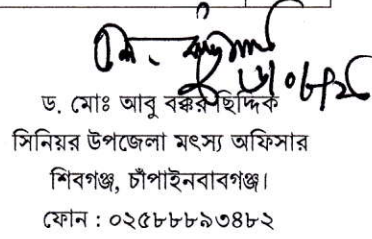 ড. মোঃ আবু বক্কর ছিদ্দিক
সিনিয়র উপজেলা মৎস্য অফিসার
শিবগঞ্জ, চাঁপাইনবাবগঞ্জ।
ফোন : ০২৫৮৮৮৯৩৪৮২